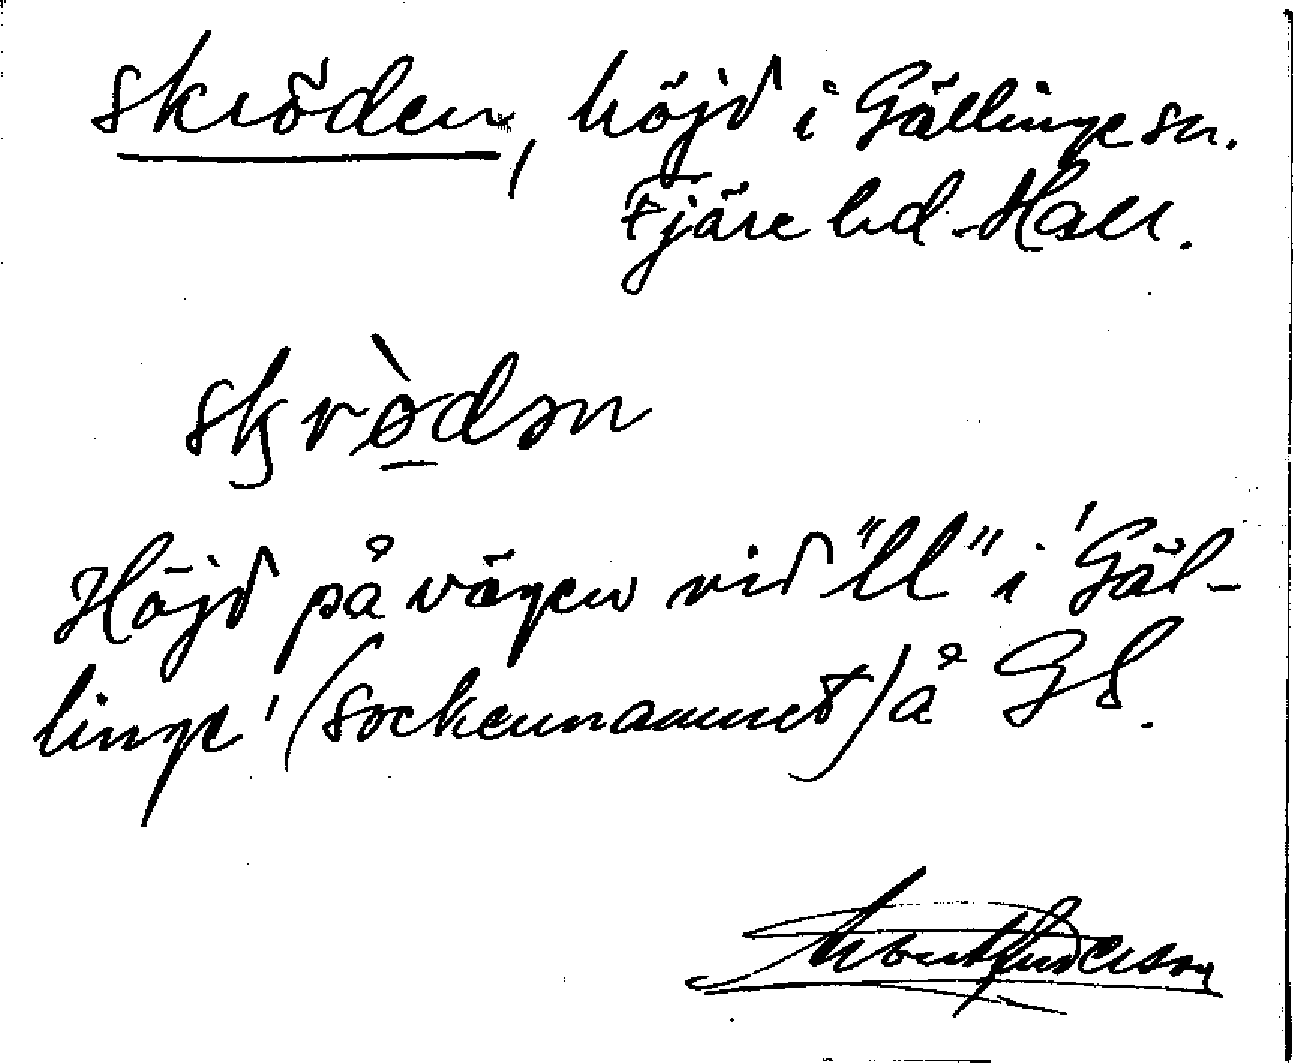 Skröden, höjd i Gällinge sn.
Fjäre hd. Hall.
skrö̀dən
Höjd på vägen vid "ll" i 'Gäl-
linge' (sockennamnet) å GS.